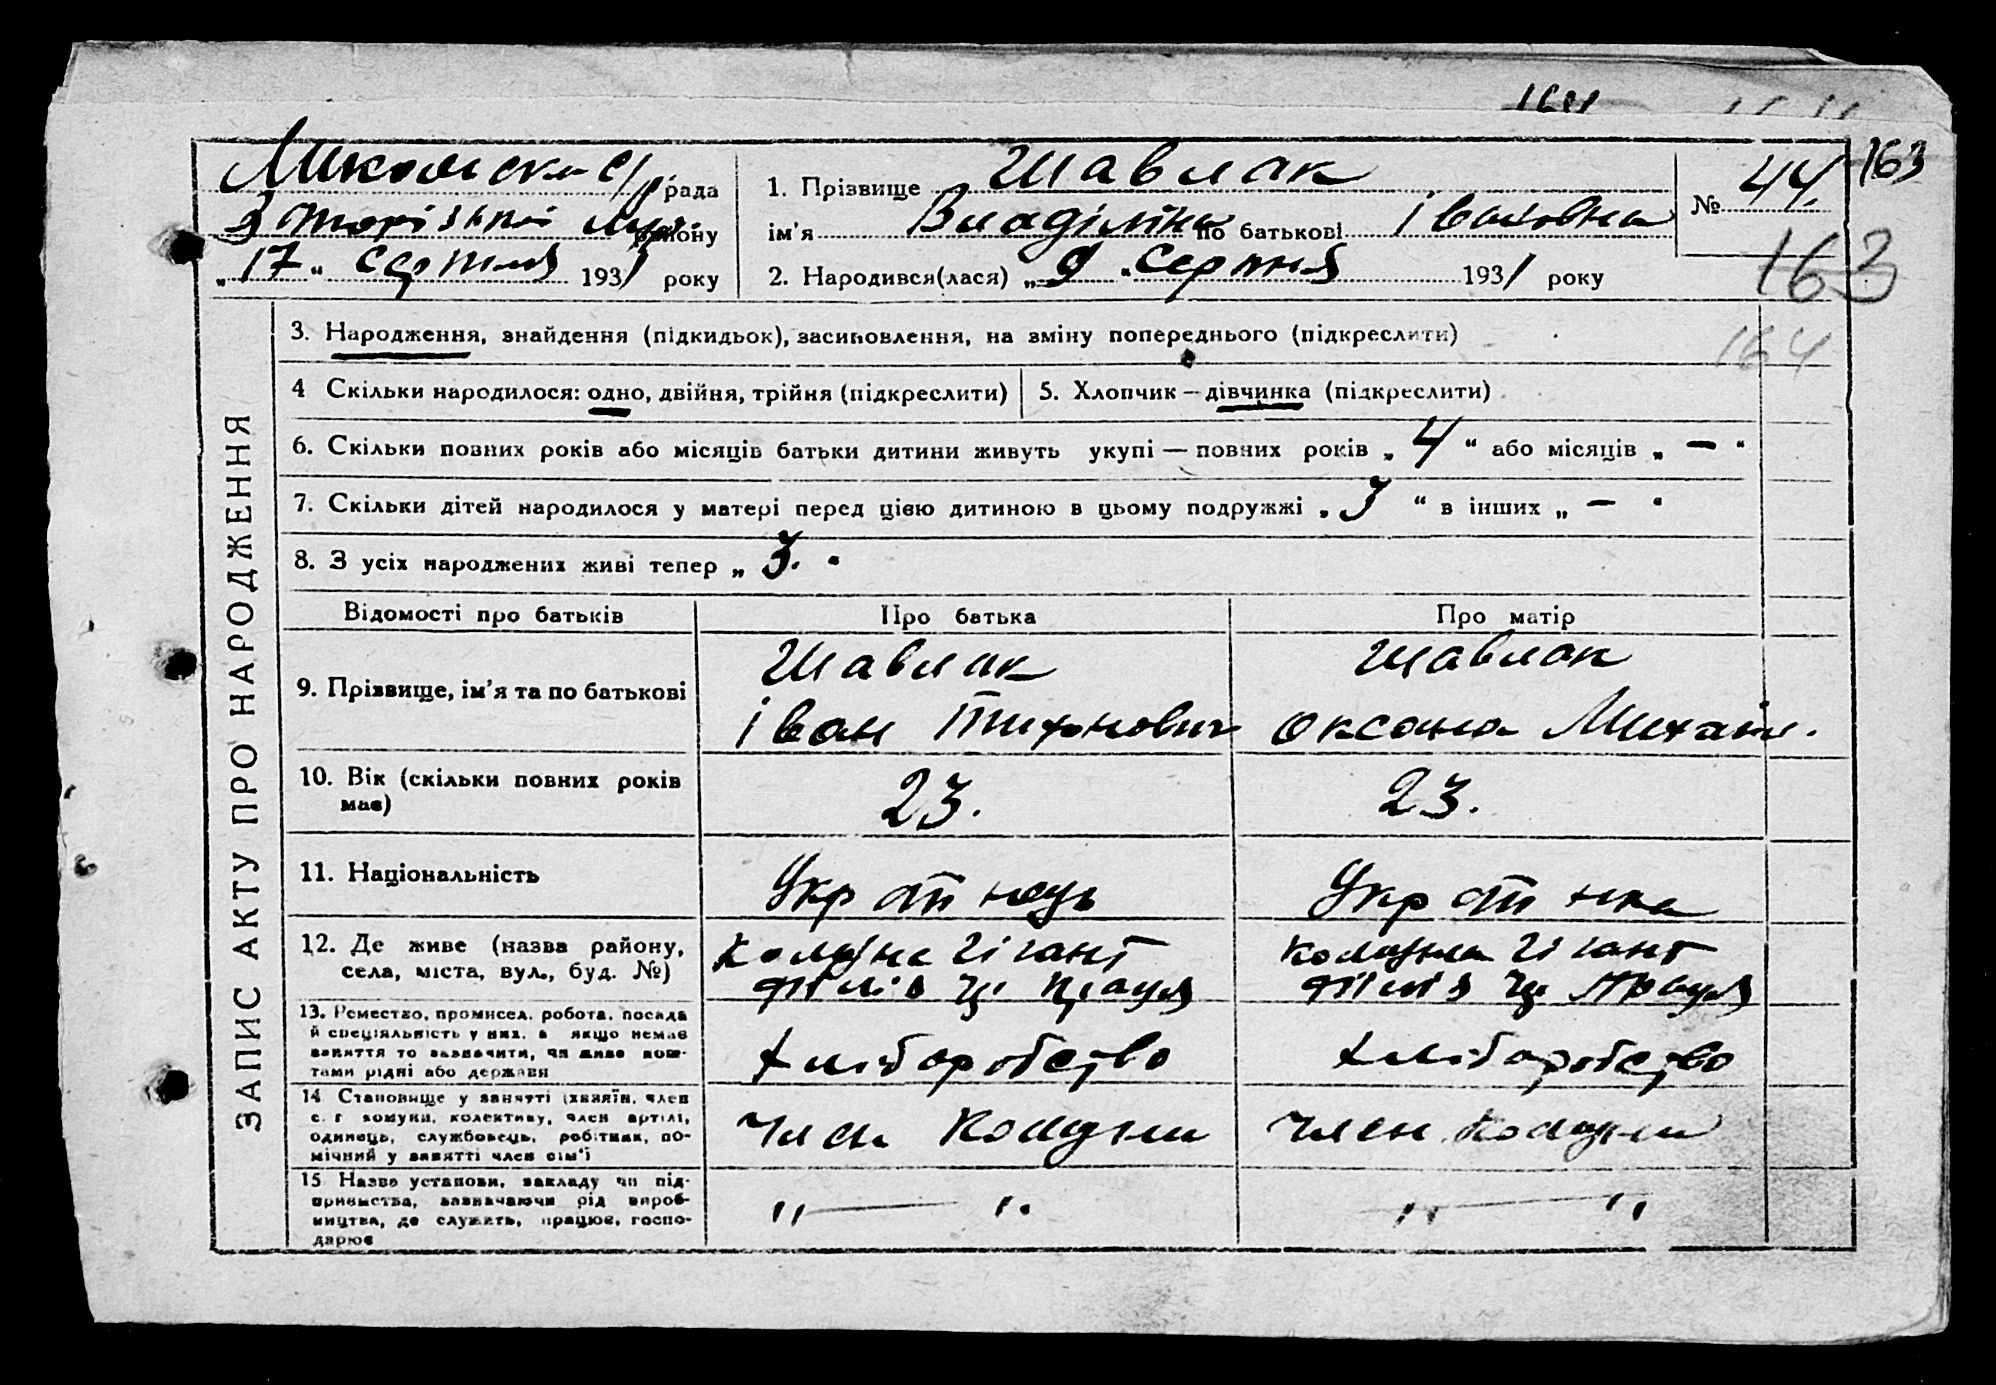 164
163
рада
району
„17“ Серпня 1931 року
1. Прізвище Шавлак
ім'я Владіліна по батькові Івановна
2. Народився(лася) „9“ Серпня 1931 року
№ 44.
163
164
ЗАПИС АКТУ ПРО НАРОДЖЕННЯ
3. Народження, знайдення (підкидьок), засиновлення, на зміну попереднього (підкреслити)
4 Скільки народилося: одно, двійня, трійня (підкреслити)
5. Хлопчик — дівчинка (підкреслити)
6. Скільки повних років або місяців батьки дитини живуть укупі — повних років „4“ або місяців „—“
7. Скільки дітей народилося у матері перед цією дитиною в цьому подружжі „3“ в інших „—“
8. З усіх народжених живі тепер „3.“
Відомості про батьків
Про батька
Про матір
9. Прізвище, ім'я та по батькові
Шавлак
Іван Тихонович
Шавлак
Оксана Михайл.
10. Вік (скільки повних років
має)
23.
23.
11. Національність
Українець
Українка
12. Де живе (назва району,
села, міста, вул., буд. №)
Комуна Гігант
філія
Комуна Гігант
філія
13. Ремество, промисел, робота, посада
й спеціяльність у них, а якщо немає
заняття то зазначити, чи живе кош-
тами рідні або держави
Хліборобство
Хліборобство
14 Становище у занятті (хазяїн, член
с. г комуни, колективу, член артілі,
одинець, службовець, робітник, по-
мічний у занятті член сім'ї
Член Комуни
Член Комуни
15 Назва установи, закладу чи під-
приємства, зазначаючи рід вироб-
ництва, де служить, працює, госпо-
дарює
„ — „
„ — „